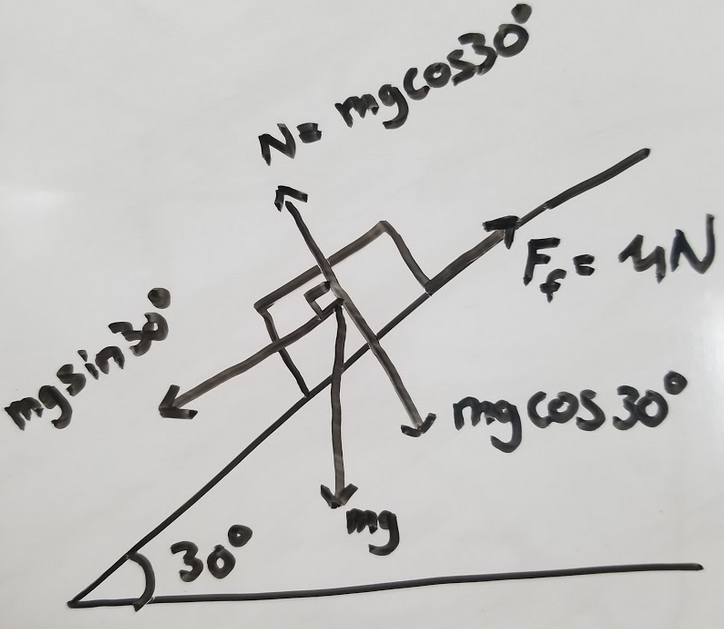 N= mgcos30°
F_f= μN
mgsin30°
mgcos30°
mg
30°